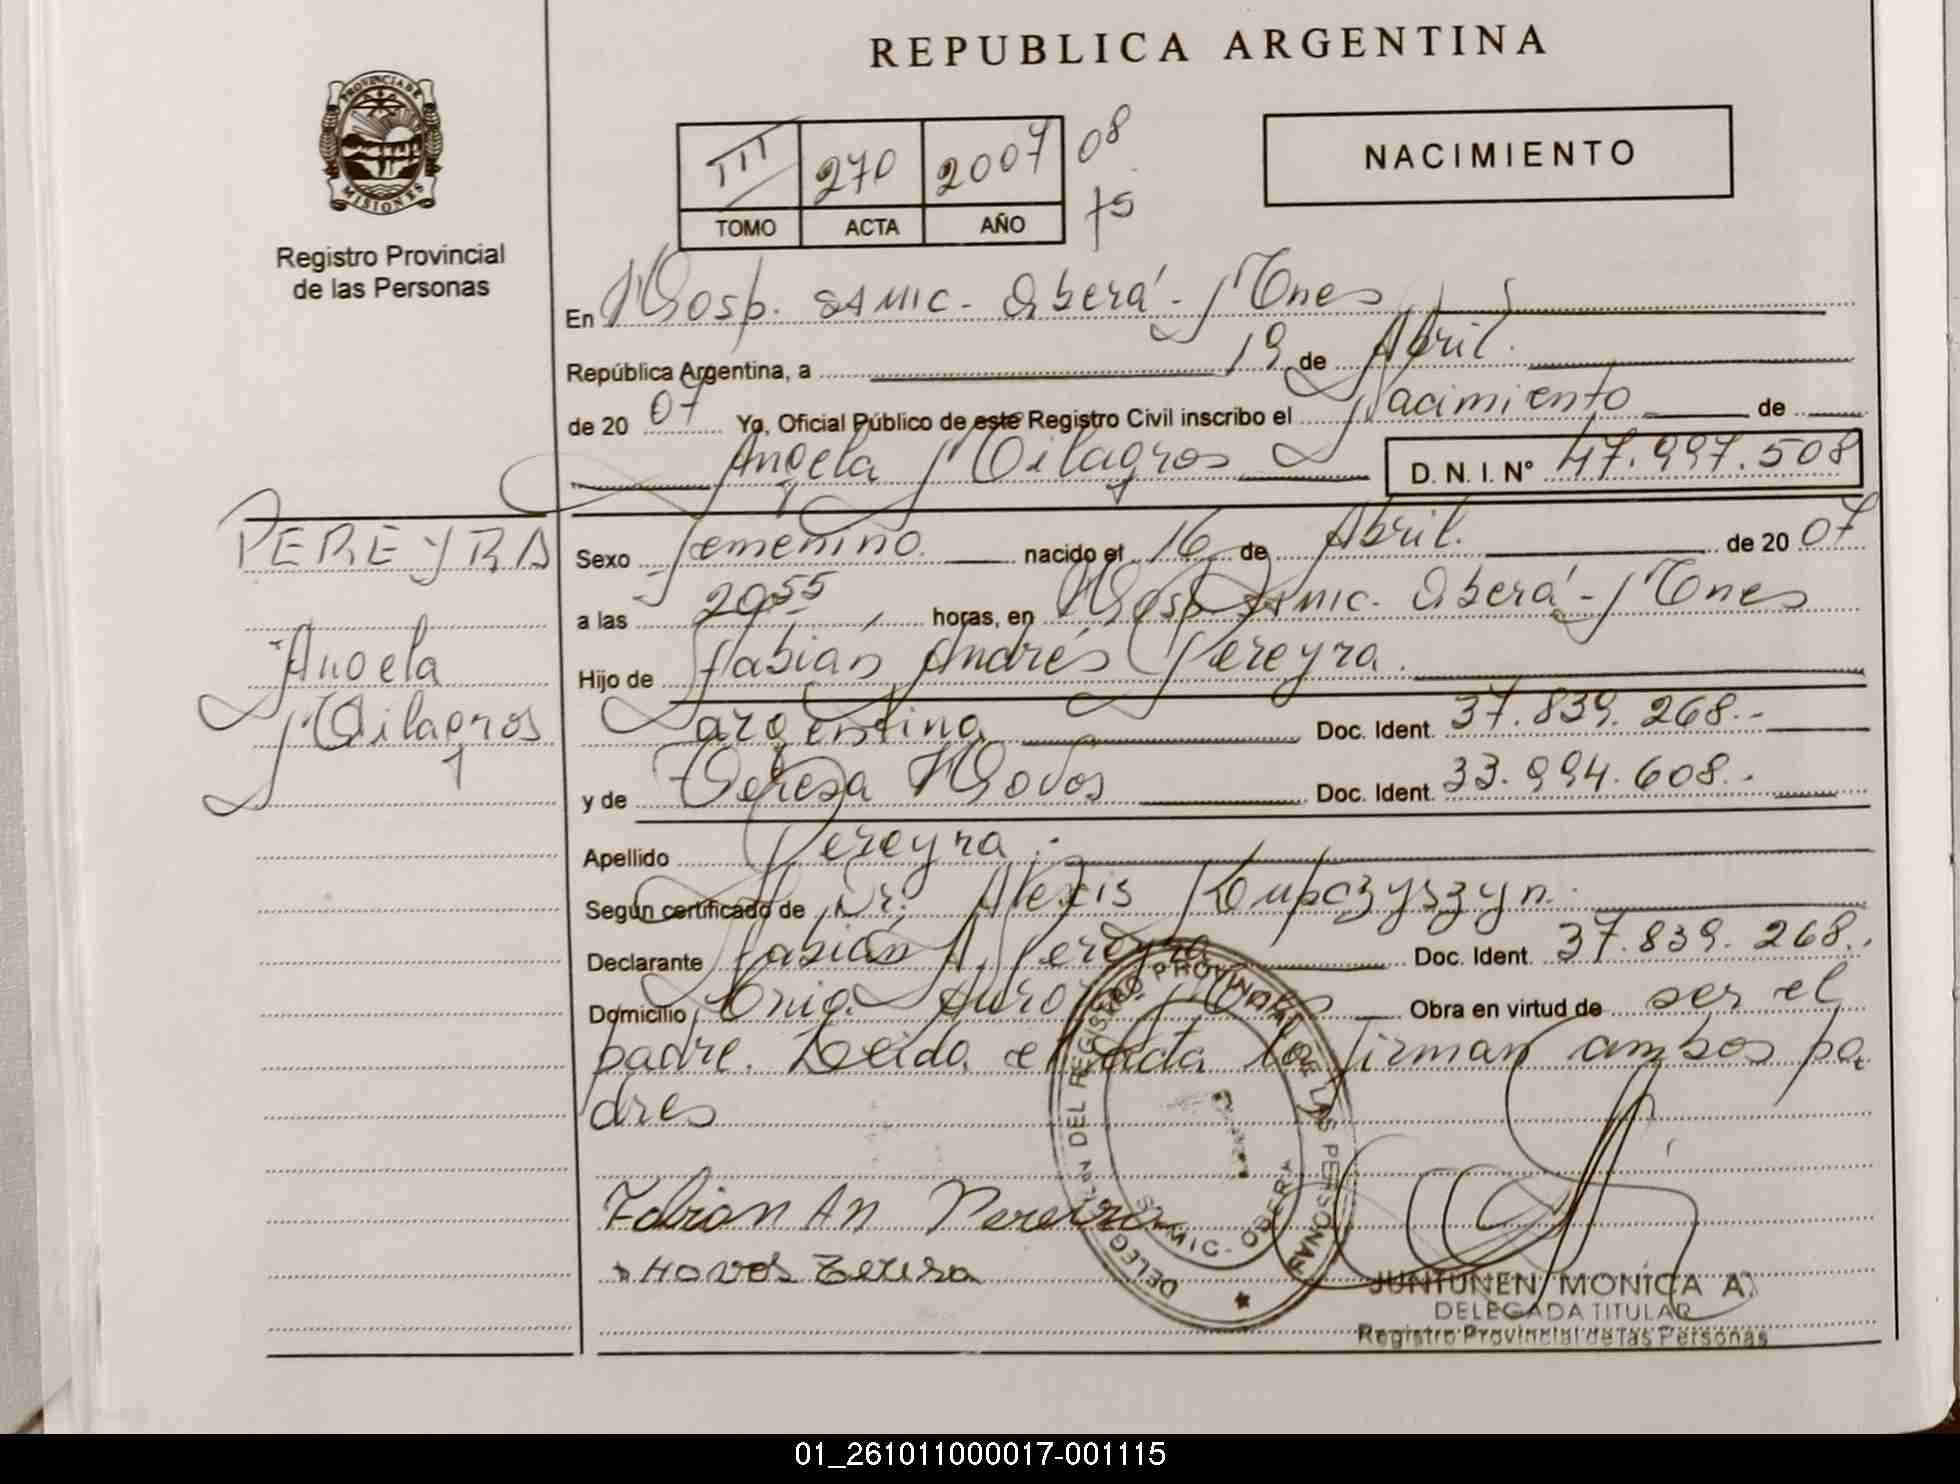 REPUBLICA ARGENTINA
PROVINCIA DE
MISIONES
Registro Provincial
de las Personas
III 270 2007 08
TOMO ACTA AÑO 75
NACIMIENTO
En Hosp. SAMIC - Oberá - Mnes
República Argentina, a 19 de Abril.
de 20 07 Yo, Oficial Público de este Registro Civil inscribo el Nacimiento de
Angela Milagros D. N. I. Nº 47.997.508
PEREYRA
Angela
Milagros
Sexo femenino. nacido el 16 de Abril. de 20 07
a las 20 55 horas, en Hosp SAMIC. Oberá - Mnes
Hijo de Fabián Andrés Pereyra.
argentina Doc. Ident. 37.839.268.-
y de Teresa Hovos Doc. Ident. 33.994.608.-
Apellido Pereyra.
Según certificado de Dr. Alexis Kupczyszyn.
Declarante Fabián A. Pereyra Doc. Ident. 37.839.268.
Domicilio Mnes Obra en virtud de ser el
padre. Leída el Acta la firman ambos pa
dres
Fabian An Pereira
Hovos Teresa
DELEGACION DEL REGISTRO PROVINCIAL DE LAS PERSONAS
SAMIC - OBERA
JUNTUNEN MONICA A.
DELEGADA TITULAR
Registro Provincial de las Personas
01_261011000017-001115